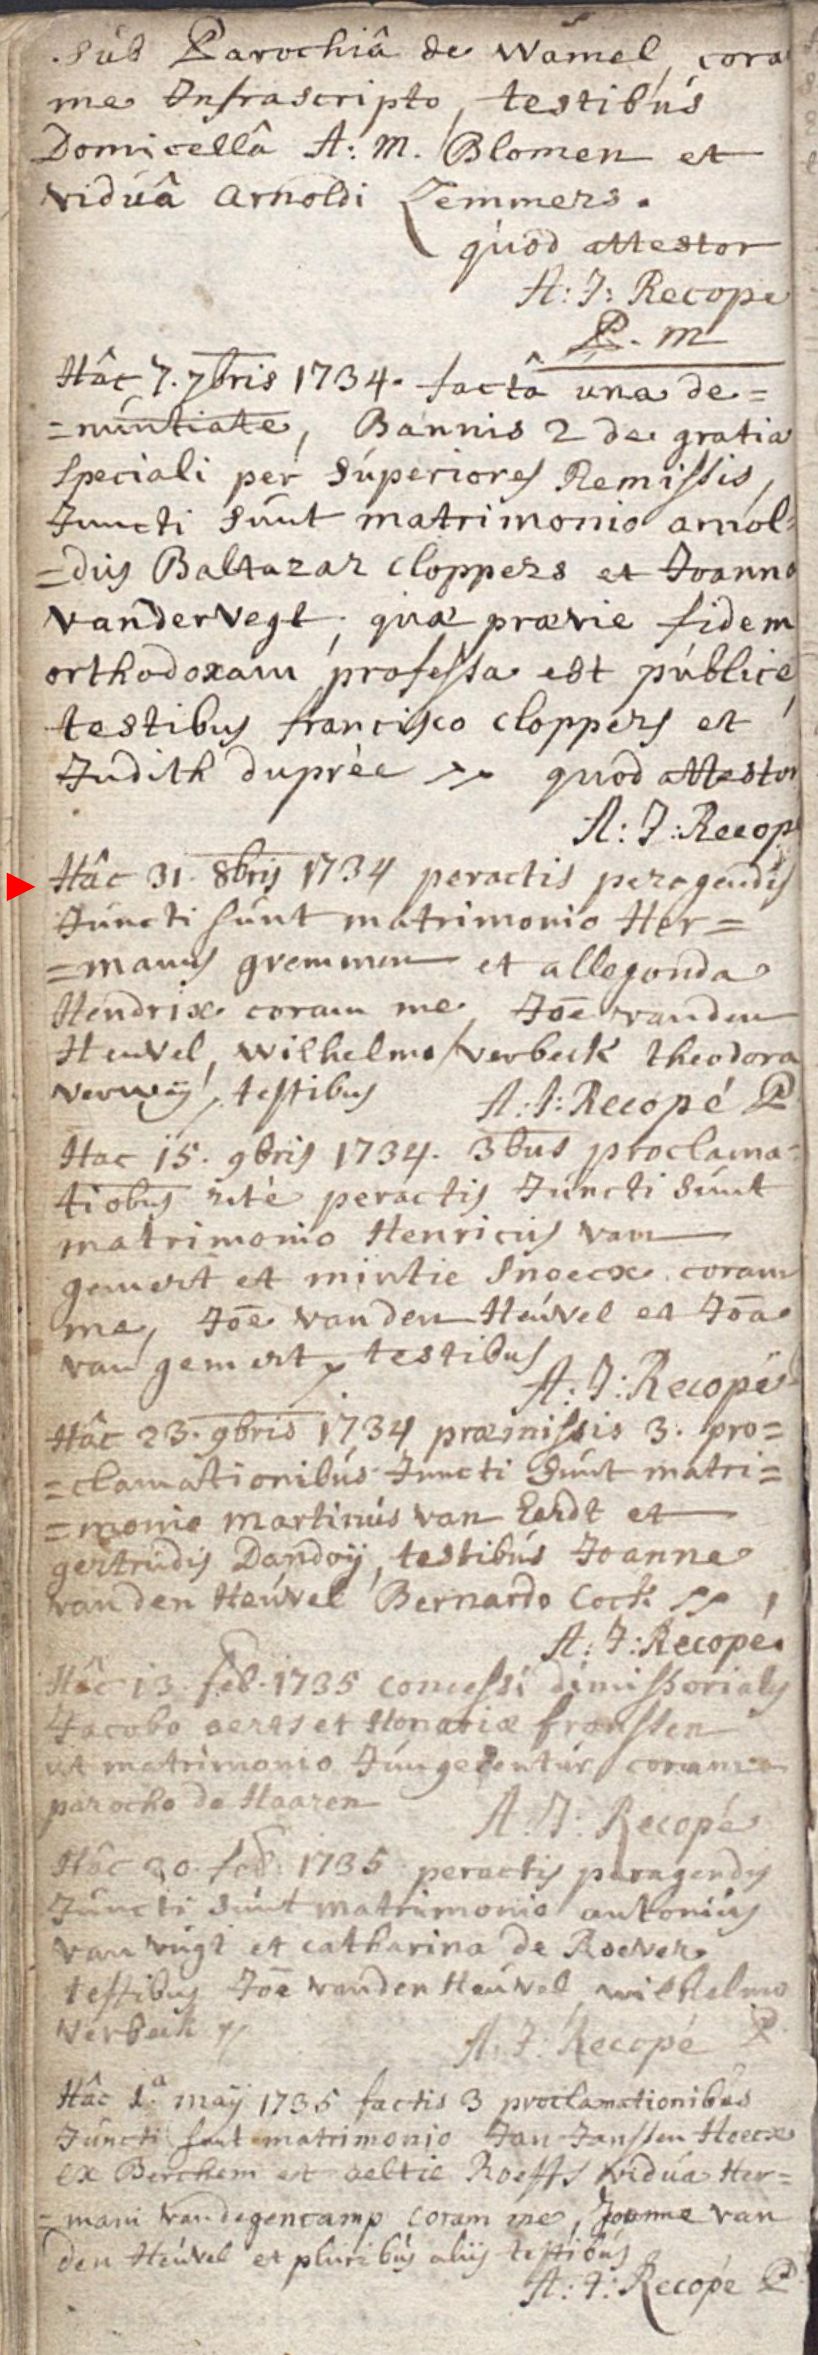 sub Parochiâ de Wamel, cora
me Infrascripto, testibus
Domicellâ A: M. Blomen et
viduâ Arnoldi Zemmers.
quod attestor
A: J: Recope
P. m
Hâc 7. 7bris 1734. factâ una de=
=nuntiate, Bannis 2 de gratia
speciali per superiores Remissis,
Juncti sunt matrimonio arnol=
=dus Baltazar Cloppers et Joanna
vandervegt, quæ prævie fidem
orthodoxam professa est publice,
testibus francisco Cloppers et
Judith duprée quod attestor
A: J: Recop
Hâc 31. 8bris 1734 peractis peragendis
Juncti sunt matrimonio Her=
=manus gremmen et allegonda
Hendrix coram me, Joē vanden
Heuvel, wilhelmo verbeek theodora
verweij, testibus A: J: Recopé P
Hac 15. 9bris 1734. 3bus proclama=
tiobus rite peractis Juncti sunt
matrimonio Henricus van
gemert et mintie Snoecx coram
me, Joē van den Heuvel et Joā
van gemert testibus
A: J: Recopé
Hâc 23. 9bris 1734 præmissis 3. pro=
=clamationibus Juncti sunt matri=
=monio martinus van Eerdt et
gertrudis Dandoij, testibus Joanne
van den Heuvel Bernardo Cock
A: J: Recopé
Hâc 13. feb. 1735 concessi dimissoriales
Jacobo aerts et Honoriæ franssen
ut matrimonio Jungerentur coram
parocho de Haaren A: J: Recopé
Hâc 20. feb. 1735 peractis peragendis
Juncti sunt matrimonio antonius
van vugt et catharina de Roever
testibus Joē vanden Heuvel, wilhelmo
verbeek A: J: Recopé P
Hâc 1.a maij 1735 factis 3 proclamationibus
Juncti sunt matrimonio Jan Janssen Hoecx
ex Berchem et aeltie Roeffs vidua Her=
=mani vandegencamp coram me, Joanne van
den Heuvel et pluribus alijs testibus
A: J: Recopé P